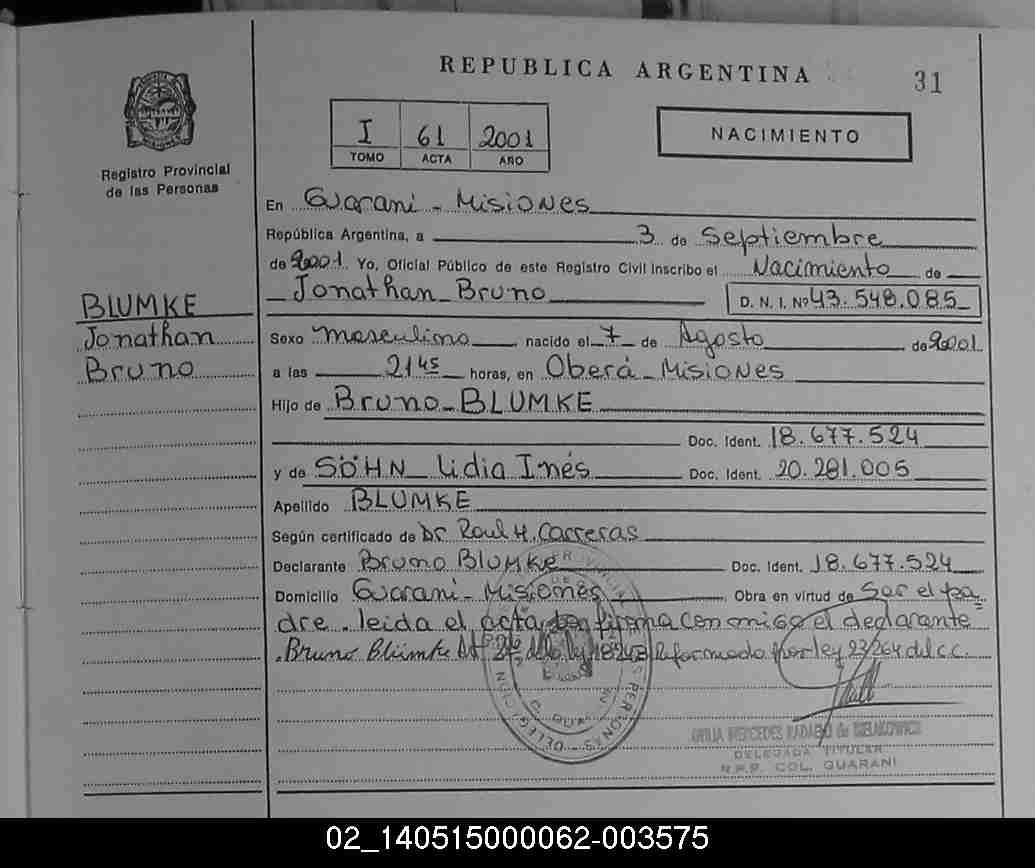 REPUBLICA ARGENTINA
31
Registro Provincial
de las Personas
I 61 2001
TOMO ACTA AÑO
NACIMIENTO
En Guarani - Misiones
República Argentina, a 3 de Septiembre
de 2001 Yo, Oficial Público de este Registro Civil inscribo el Nacimiento de
Jonathan Bruno D. N. I. Nº 43.548.085
BLUMKE
Jonathan
Bruno
Sexo masculino nacido el 7 de Agosto de 2001
a las 21 45 horas, en Oberá - Misiones
Hijo de Bruno - BLUMKE
Doc. Ident. 18.677.524
y de SÖHN Lidia Inés Doc. Ident. 20.281.005
Apellido BLUMKE
Según certificado de Dr. Raul H. Carreras
Declarante Bruno Blumke Doc. Ident. 18.677.524
Domicilio Guarani - Misiones Obra en virtud de Ser el pa-
dre. leida el acta firma conmigo el declarante
Bruno Blumke Reformado por ley 23264 del c.c.
MERCEDES de
DELEGADA TITULAR
R.P.P. COL. GUARANI
02_140515000062-003575